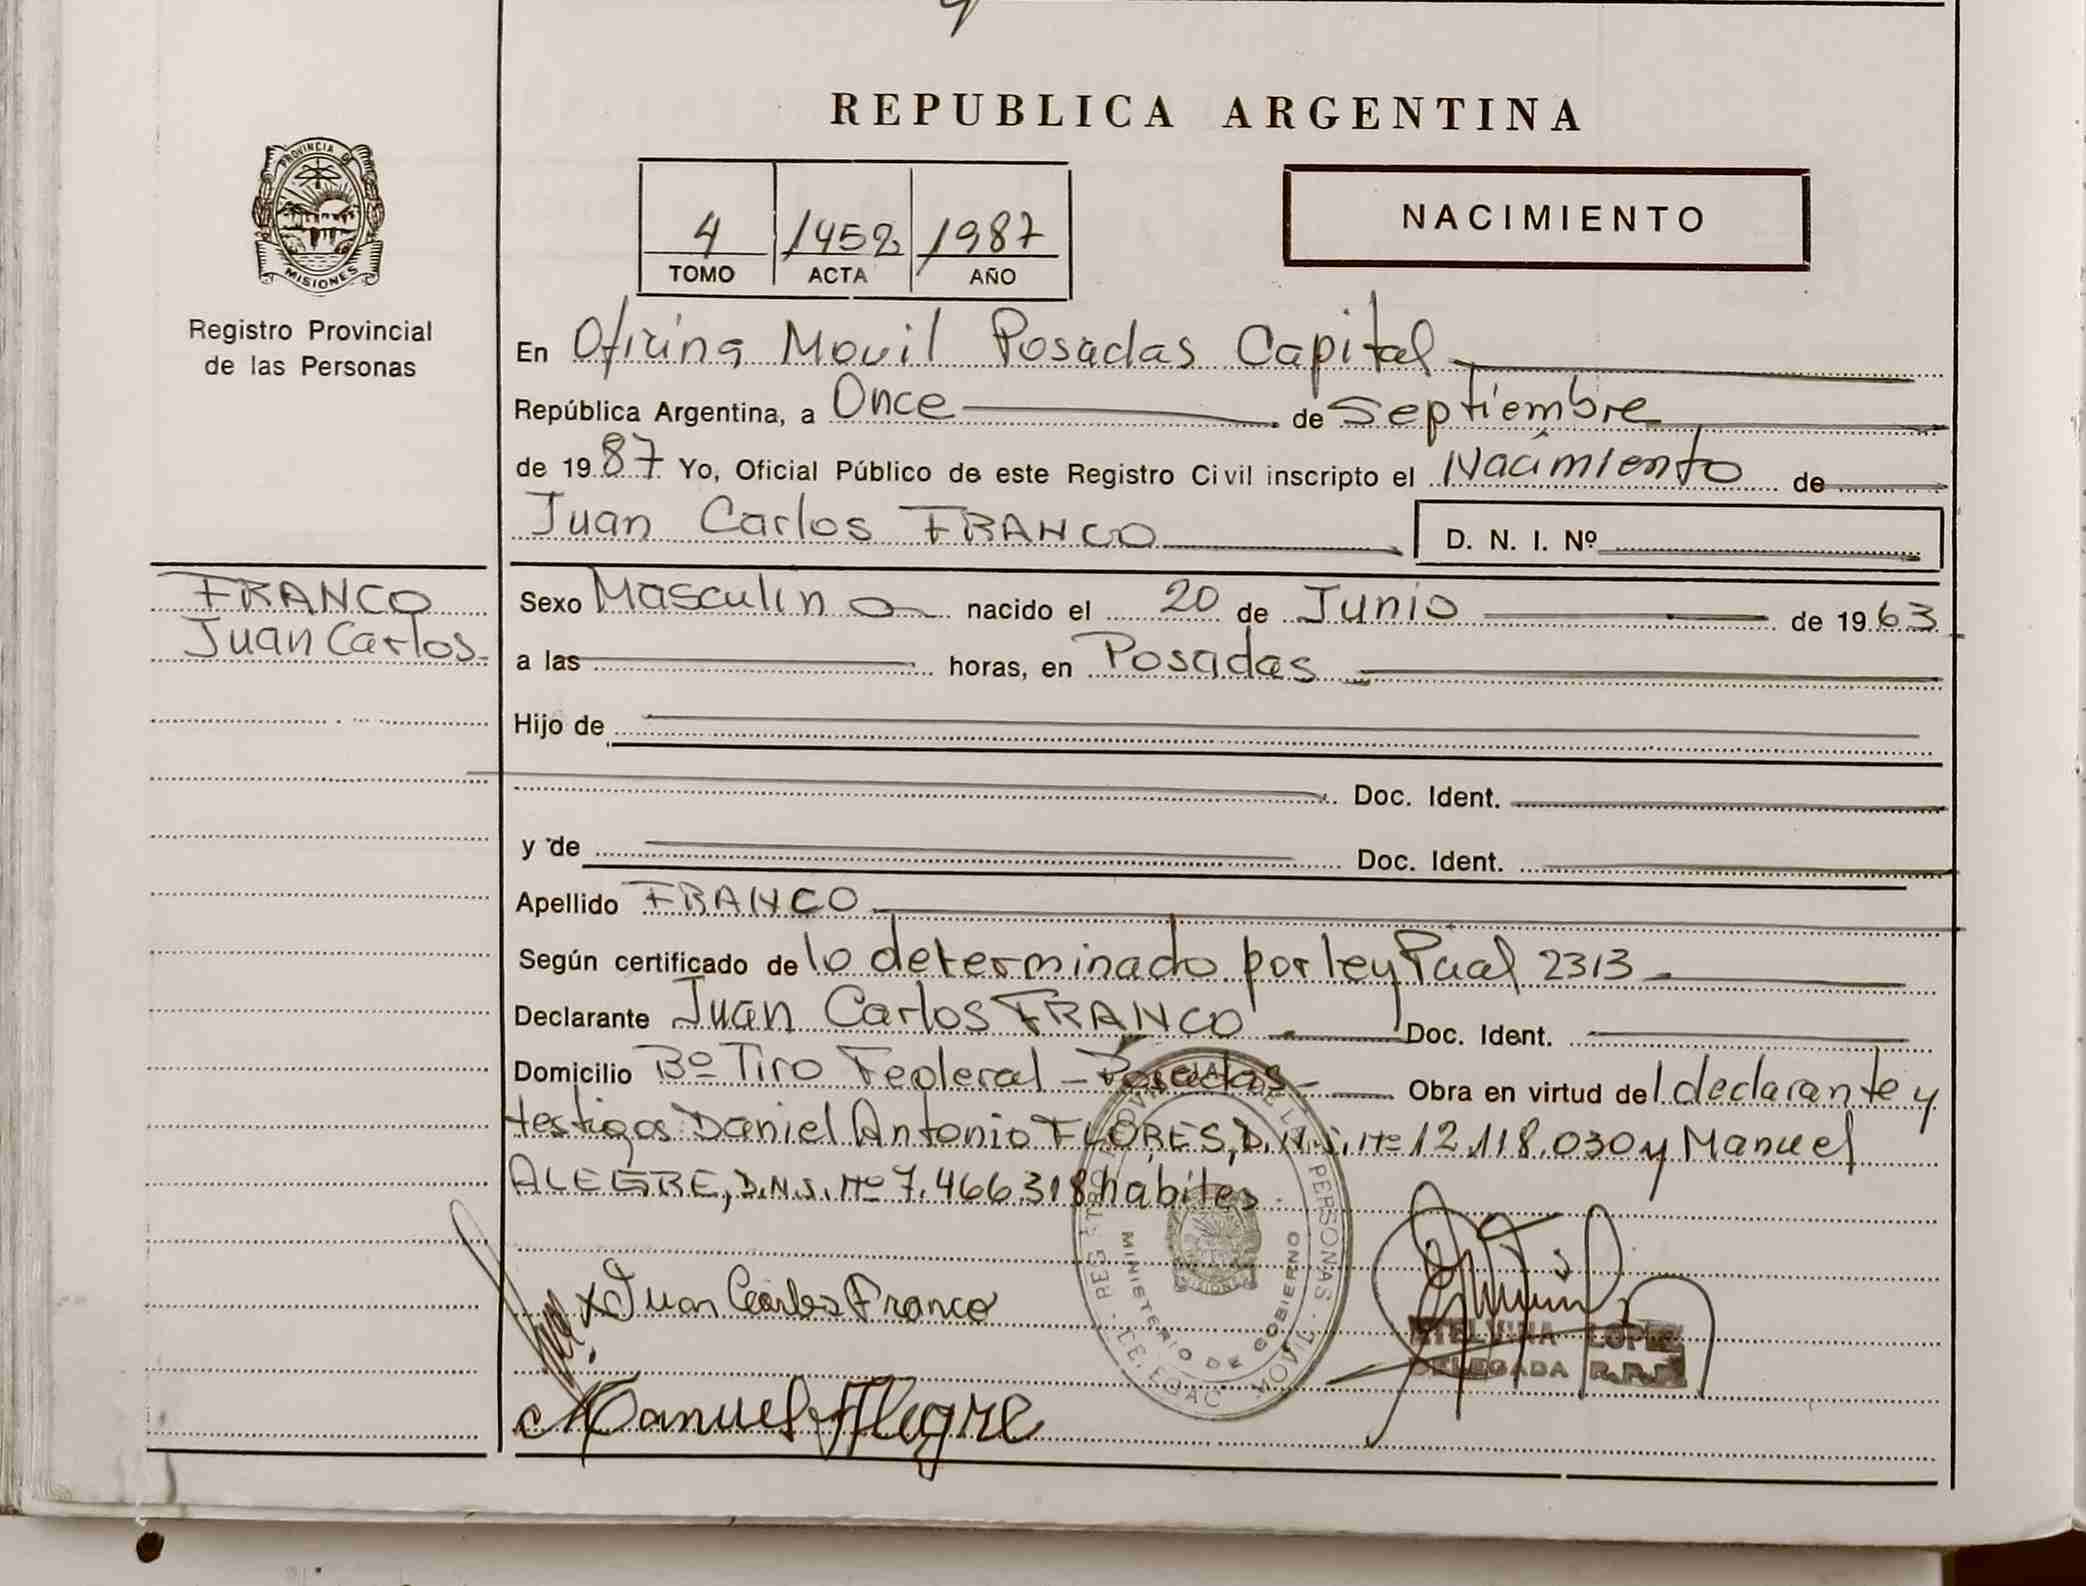 REPUBLICA ARGENTINA
PROVINCIA DE
MISIONES
Registro Provincial
de las Personas
4 1452 1987
TOMO ACTA AÑO
NACIMIENTO
En Oficina Movil Posadas Capital
República Argentina, a Once de Septiembre
de 1987 Yo, Oficial Público de este Registro Civil inscripto el Nacimiento de
Juan Carlos FRANCO D. N. I. Nº
FRANCO
Juan Carlos
Sexo Masculino nacido el 20 de Junio de 1963
a las horas, en Posadas
Hijo de
Doc. Ident.
y de Doc. Ident.
Apellido FRANCO
Según certificado de lo determinado por ley Pcial 2313
Declarante Juan Carlos FRANCO Doc. Ident.
Domicilio Bº Tiro Federal - Posadas - Obra en virtud del declarante y
testigos Daniel Antonio FLORES, D.N.I. Nº 12.118.030 y Manuel
ALEGRE, D.N.I. Nº 7.466318 habiles
Juan Carlos Franco
Manuel Alegre
PERSONAS
MINISTERIO DE GOBIERNO
MOVIL
ETELVINA LOPEZ
DELEGADA R.P.P.